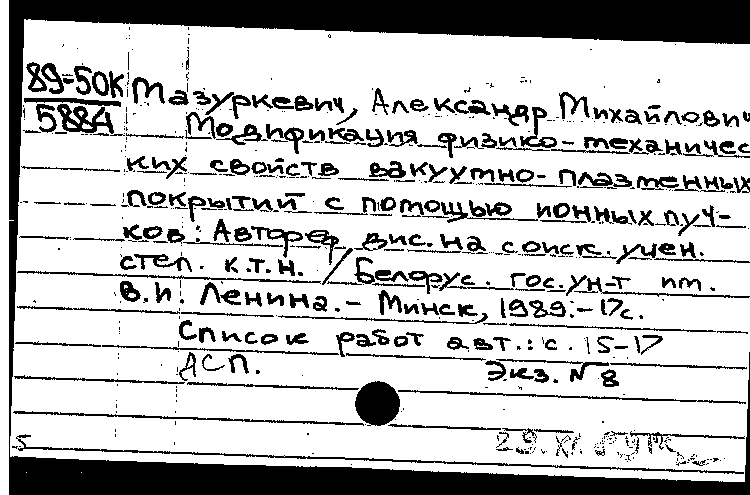 89-50К
5884
Мазуркевич, Александр Михайлович
Модификация физико-механичес
ких свойств вакуумно-плазменных
покрытий с помощью ионных пуч-
ков: Автореф дис. на соиск. учен.
степ. к.т.н. / Белорус. гос. ун-т им.
В.И. Ленина. - Минск, 1989. - 17с.
Список работ авт.: с. 15-17
ДСП.
Экз. N 8
5
29.XI.89